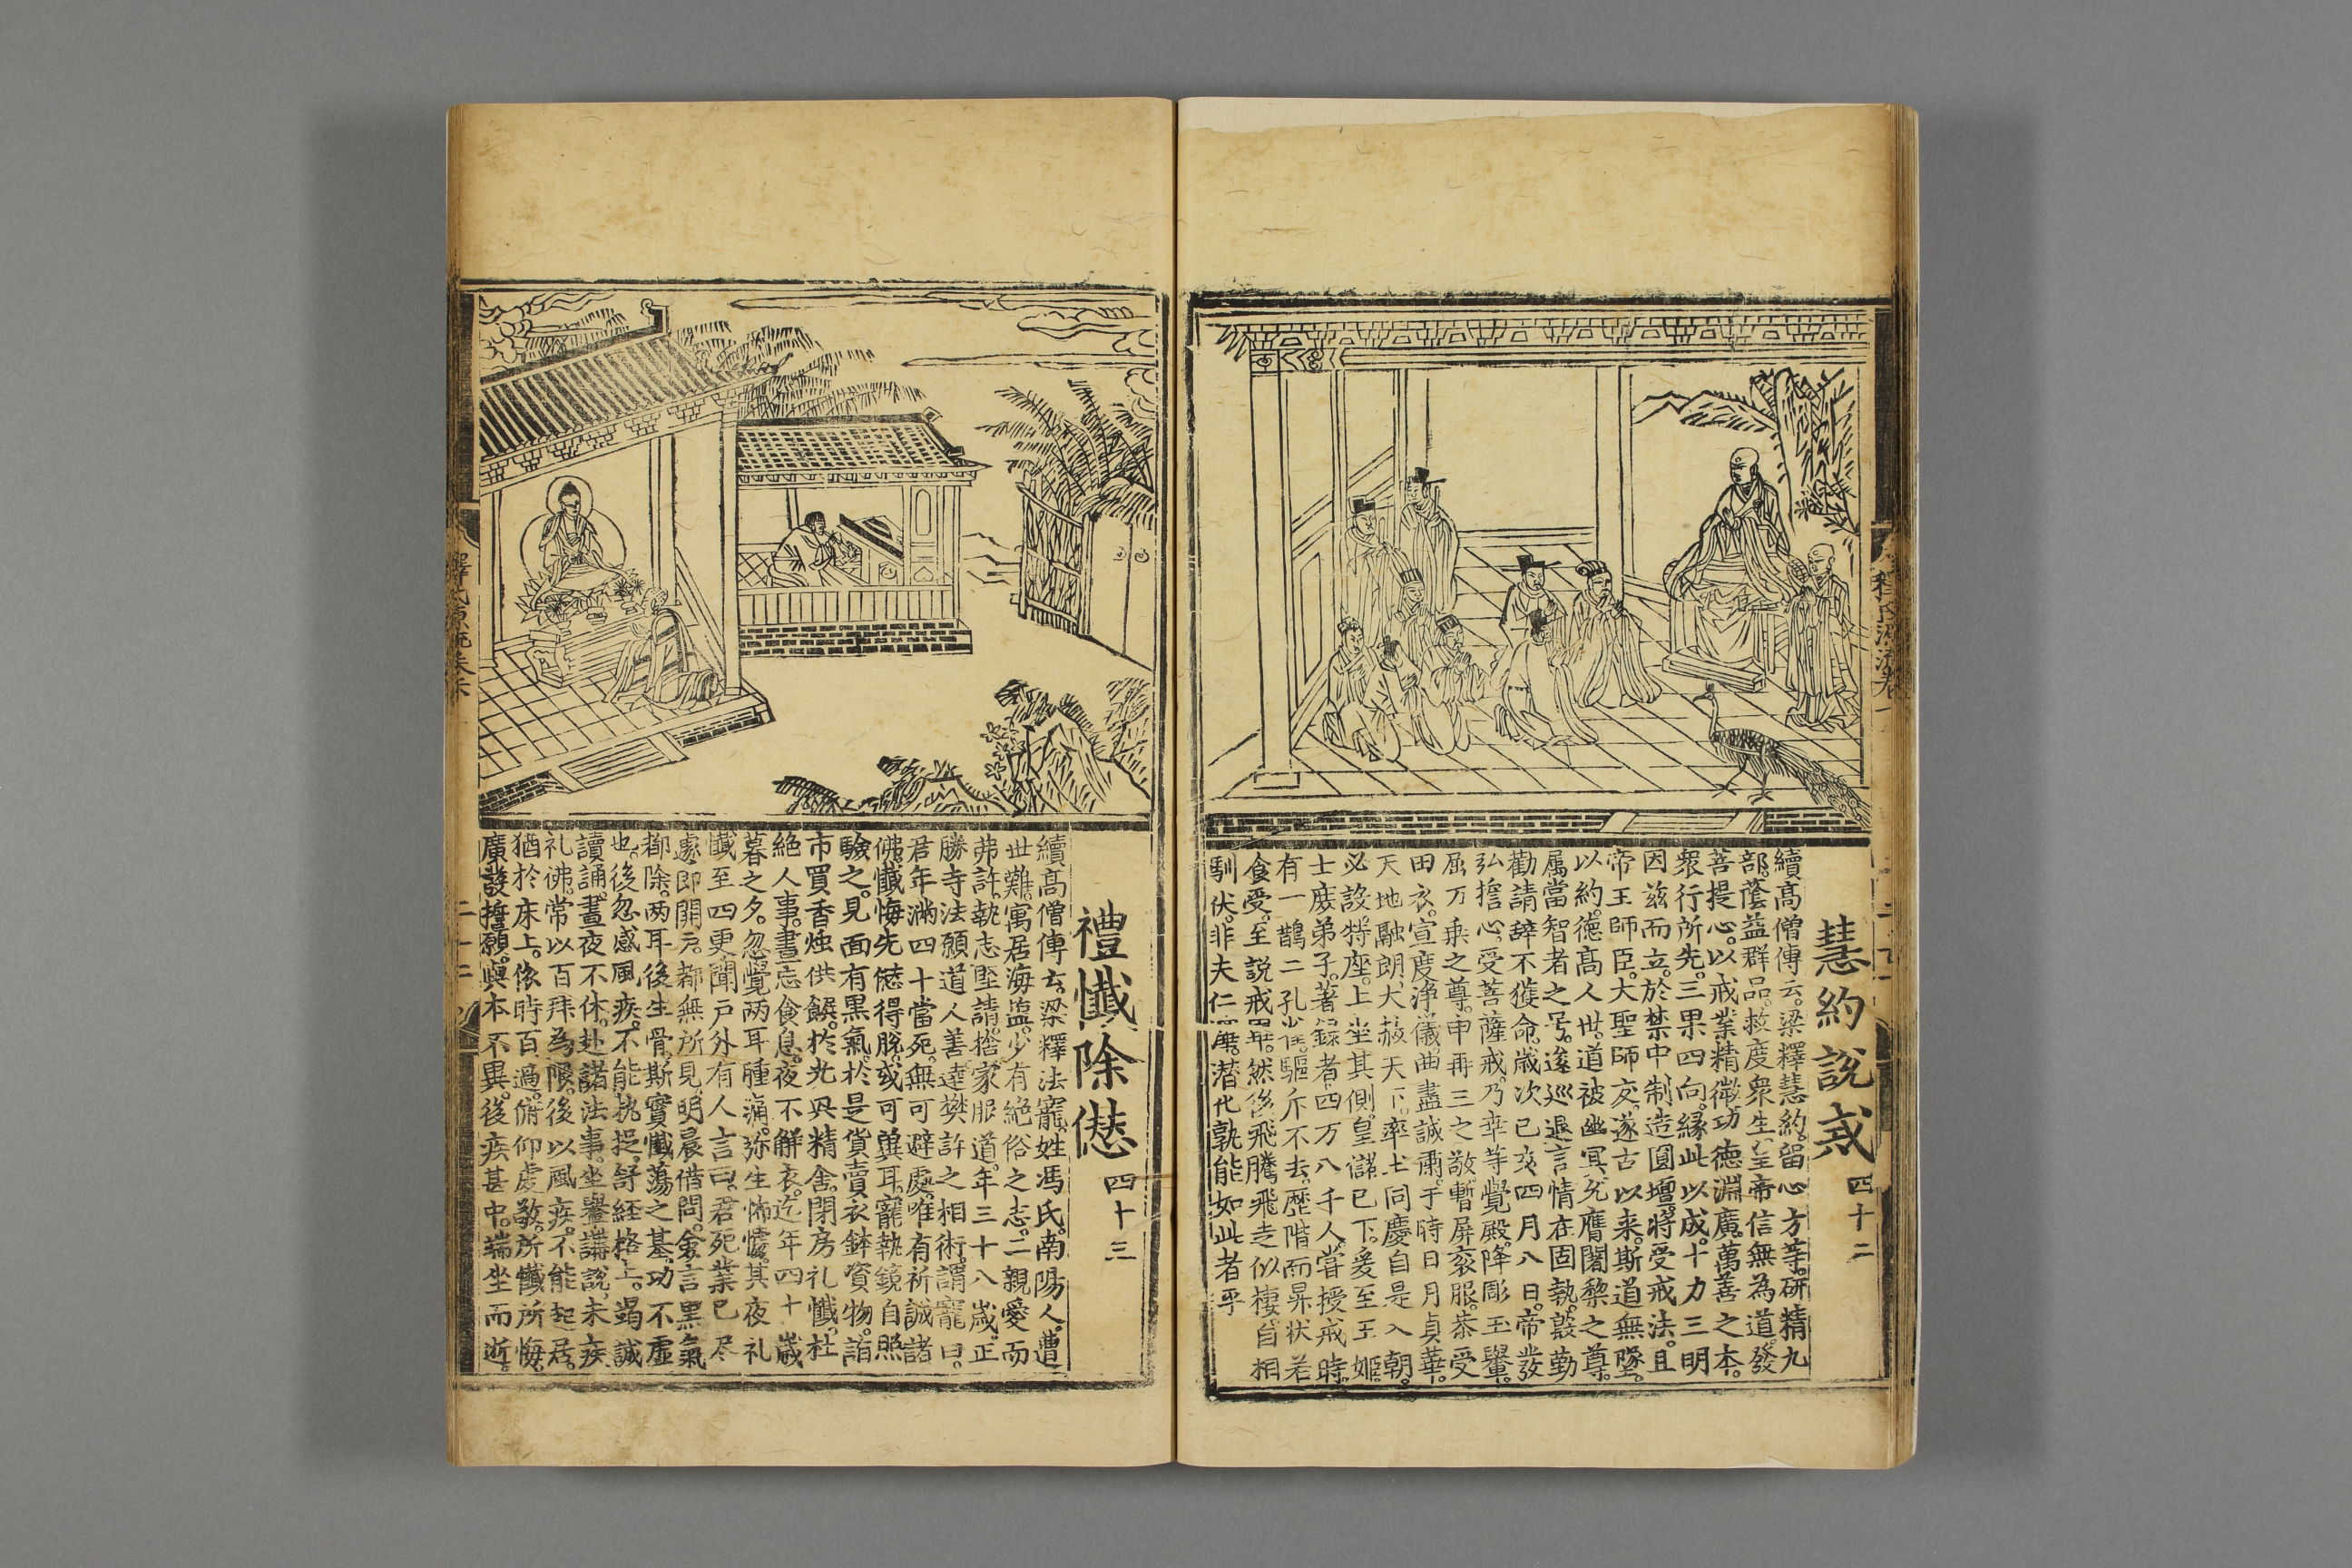 慧約說戒 四十二
續高僧傳云。梁釋慧約。留心方等。研精九
部。蔭益群品。救度衆生。皇帝信無為道。發
菩提心。以戒業精微。功德淵廣。萬善之本。
衆行所先。三果四向。縁此以成。十力三明
因茲而立。於禁中制造圓壇。將受戒法。且
帝王師臣。大聖師友。遂古以来。斯道無墜。
以約。德高人世。道被幽冥。允膺闍黎之尊。
属當智者之号。逡巡退言。情在固執。敦勤
勸請。辞不獲命。歳次已亥四月八日。帝發
弘誓心。受菩薩戒。乃幸等覺殿。降彫玉輦。
屈万乗之尊。申再三之敬。暫屏衮服。恭受
田衣。宣度浄儀。曲盡誠肅。于時日月貞華。
天地融朗。大赦天下。率土同慶。自是入朝。
必設特座。上坐其側。皇儲已下。爰至王姬。
士庻弟子。著録者四万八千人。嘗授戒時。
有一鵲二孔雀。驅斥不去。歷階而昇。状若
飡受。至説戒畢。然後飛騰。飛走似棲。自相
馴伏。非夫仁 潜化孰能如此者乎
禮懺除愆 四十三
續高僧傳云。梁釋法寵。姓馮氏。南陽人。遭
世難。寓居海鹽。少有絶俗之志。二親愛而
弗許。執志堅請。捨家服道。年三十八歳。正
勝寺法願道人善達樊許之相術。謂寵曰。
君年滿四十當死。無可避處。唯有祈誠諸
佛。懺悔先愆得脱。或可冀耳。寵執鏡自照
驗之。見面有黒氣。於是貨賣衣鉢資物。詣
市買香燭供饌。於光興精舎。閉房礼懺。杜
絶人事。晝忘食息。夜不觧衣。迄年四十歳
暮之夕。忽覺两耳腫痛。弥生怖懼。其夜礼
懺至四更。聞戸外有人言曰。君死業已尽
遽即開戸。都無所見。明晨借問。僉言黒氣
都除。两耳後生骨。斯實懺蕩之基。功不虚
也。後忽感風疾。不能執捉。舒経格上。竭誠
讀誦。晝夜不休。赴諸法事。坐轝講説。未疾
礼佛。常以百拜為限。後以風疾。不能起居。
猶於床上。依時百過。俯仰虔敬。所懺所悔。
廣設誓願。與本不異。後疾甚中。端坐而逝。
釋氏源流卷
二十二